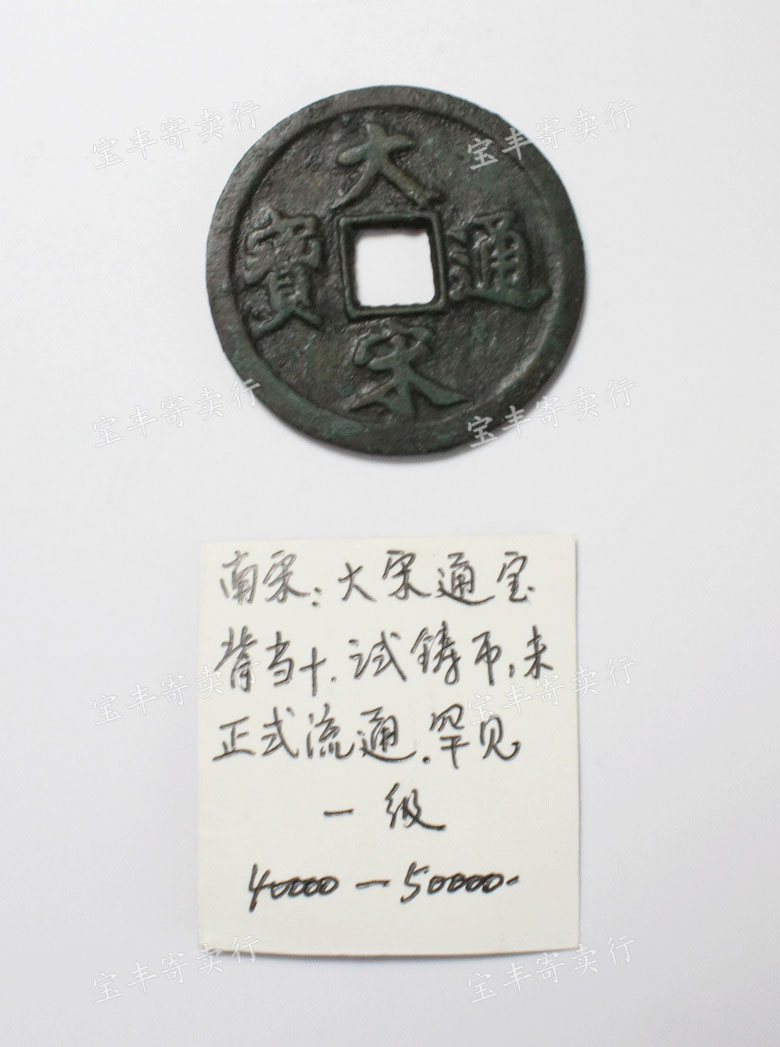 大宋通寶
南宋:大宋通宝
背当十.试铸币,未
正式流通.罕见
一级
40000—50000.
宝丰寄卖行
宝丰寄卖行
宝丰寄卖行
宝丰寄卖行
宝丰寄卖行
宝丰寄卖行
宝丰寄卖行
宝丰寄卖行